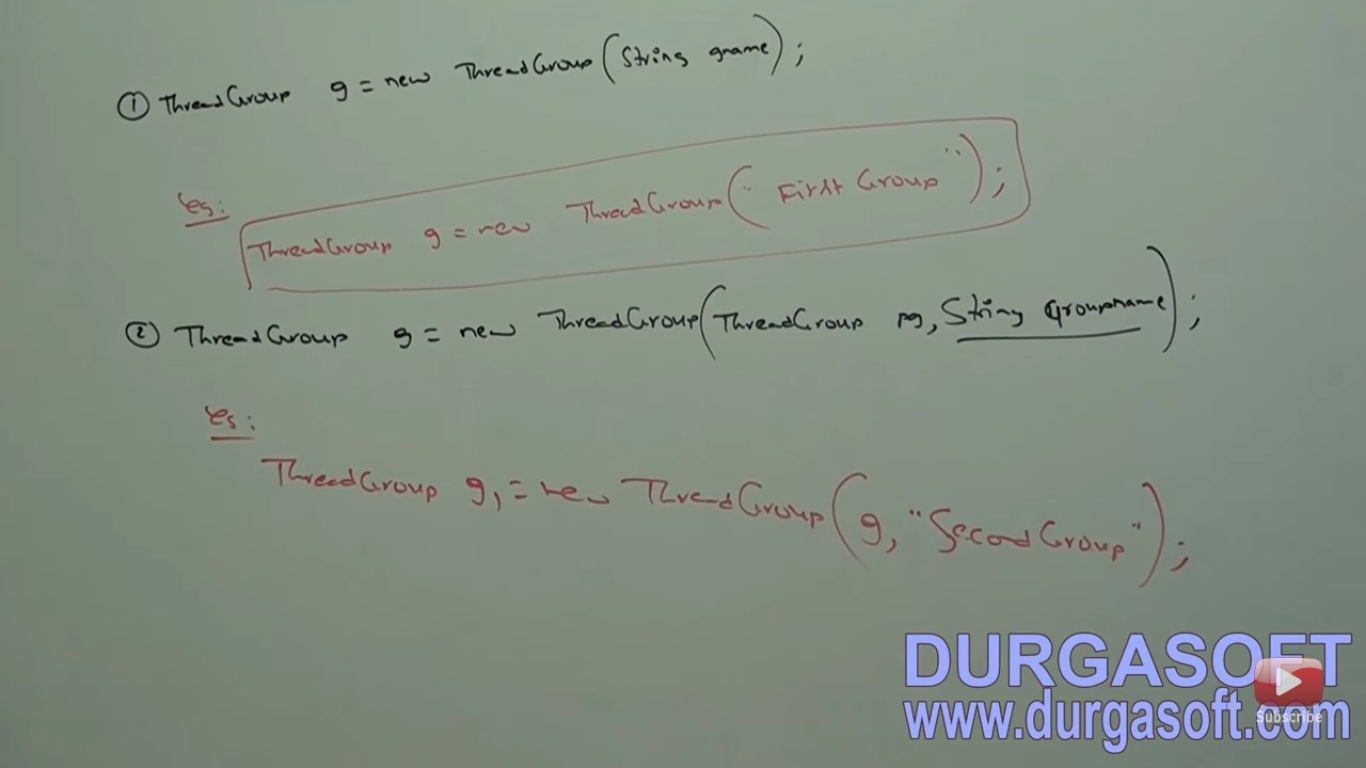 ① ThreadGroup g = new ThreadGroup(String gname);
eg:
ThreadGroup g = new ThreadGroup("First Group");
② ThreadGroup g = new ThreadGroup(ThreadGroup pg, String groupname);
eg:
ThreadGroup g1 = new ThreadGroup(g, "SecondGroup");
DURGASOFT
www.durgasoft.com
Subscribe